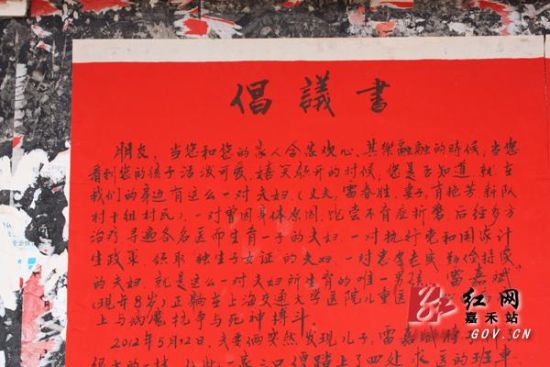 倡議書
朋友，当您和您的家人合家欢心、其樂融融的時候，当您
看到您的孩子活泼可爱、嬉笑颜开的时候，您是否知道就在
我们的身边有这么一对夫妇，(丈夫，雷春胜，妻子，肖艳芳新队
村十组村民)，一对曾因身体原因，饱尝不育症折磨，后经多方
治疗寻遍各名医而生育一子的夫妇，一对执行党和国家计
生政策、领取独生子女证的夫妇，一对忠厚老成勤俭持家
的夫妇，就是这么一对夫妇所生育的唯一男孩，"雷嘉斌"
(现年8岁)正躺在上海交通大学医院儿童医
上与病魔抗争与死神搏斗。
2012年5月12日，夫妻俩突然发现儿子，雷嘉斌
一家三口便踏上了四处求医的班車
红网
嘉禾站
GOV.CN